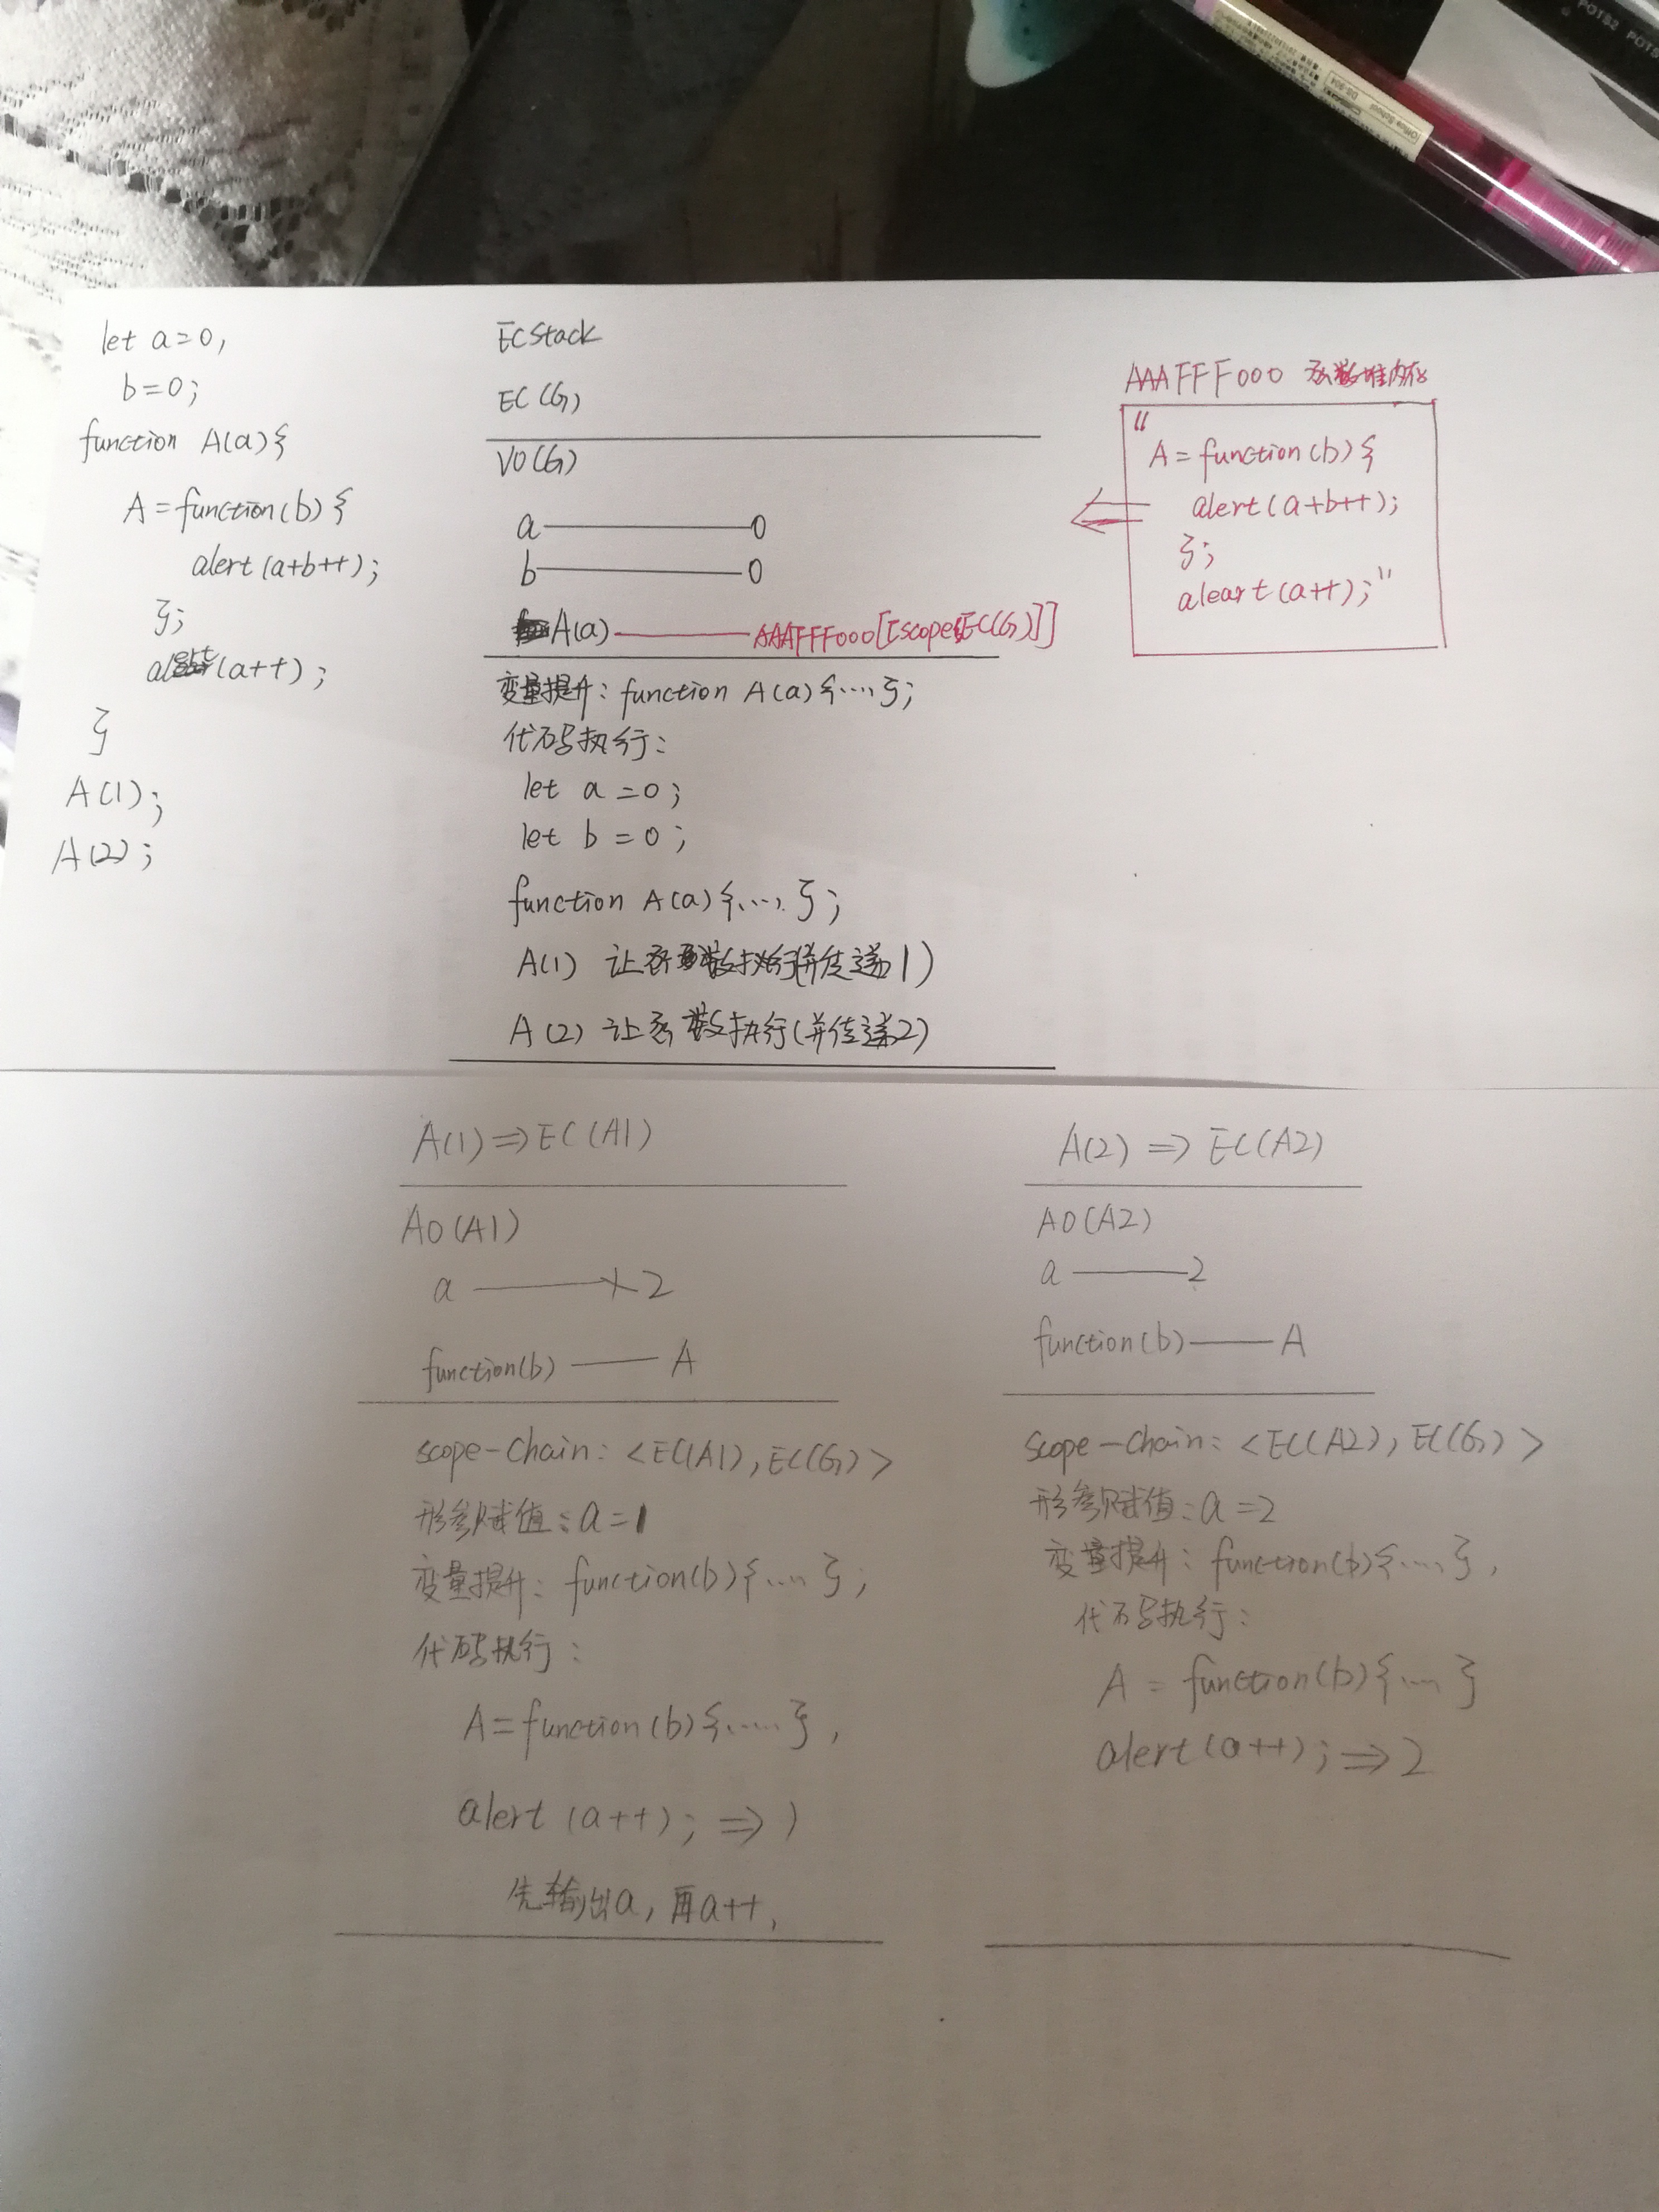 let a=0,
b=0;
function A(a){
A=function(b){
alert(a+b++);
};
alert(a++);
}
A(1);
A(2);
ECStack
EC(G)
VO(G)
a 0
b 0
A(a) AAAFFF000[[scope:EC(G)]]
变量提升: function A(a){....};
代码执行:
let a=0;
let b=0;
function A(a){....};
A(1) 让函数执行(并传递1)
A(2) 让函数执行(并传递2)
AAAFFF000 函数堆内存
"
A=function(b){
alert(a+b++);
};
aleart(a++);"
A(1)⇒EC(A1)
AO(A1)
a 2
function(b) A
scope-chain:<EC(A1),EC(G)>
形参赋值:a=1
变量提升: function(b){....};
代码执行:
A=function(b){.....},
alert(a++);⇒1
先输出a,再a++,
A(2)⇒EC(A2)
AO(A2)
a 2
function(b) A
scope-chain:<EC(A2),EC(G)>
形参赋值:a=2
变量提升: function(b){....},
代码执行:
A=function(b){....}
alert(a++);⇒2
POTS2 POTS
Office School
DS-904